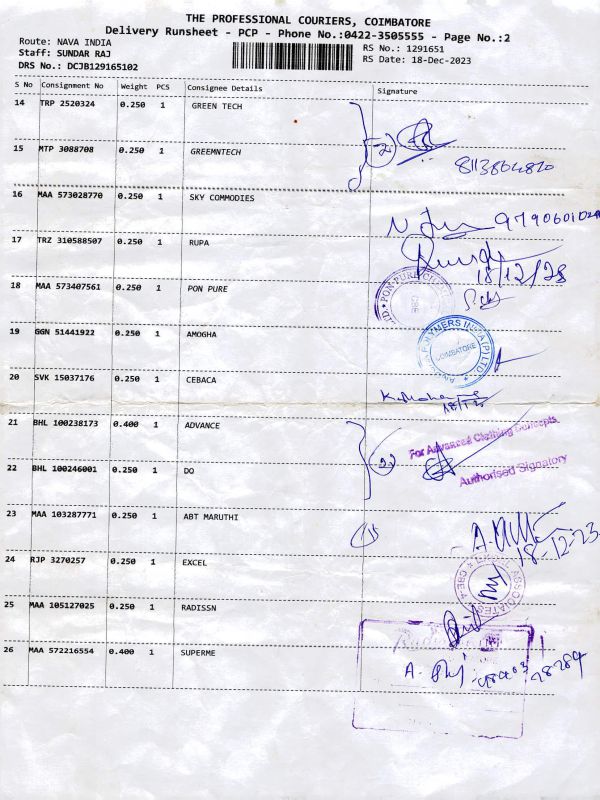 THE PROFESSIONAL COURIERS, COIMBATORE
Delivery Runsheet - PCP - Phone No.:0422-3505555 - Page No.:2
Route: NAVA INDIA
RS No.: 1291651
Staff: SUNDAR RAJ
RS Date: 18-Dec-2023
DRS No.: DCJB129165102
S No Consignment No Weight PCS Consignee Details Signature
14 TRP 2520324 0.250 1 GREEN TECH
15 MTP 3088708 0.250 1 GREEMNTECH
8113864820
16 MAA 573028770 0.250 1 SKY COMMODIES
17 TRZ 310588507 0.250 1 RUPA
18 MAA 573407561 0.250 1 PON PURE
19 GGN 51441922 0.250 1 AMOGHA
COIMBATORE
20 SVK 15037176 0.250 1 CEBACA
21 BHL 100238173 0.400 1 ADVANCE
For Advanced Clothing Concepts
22 BHL 100246001 0.250 1 DO
Authorised Signatory
23 MAA 103287771 0.250 1 ABT MARUTHI
18-12-23
24 RJP 3270257 0.250 1 EXCEL
25 MAA 105127025 0.250 1 RADISSN
26 MAA 572216554 0.400 1 SUPERME